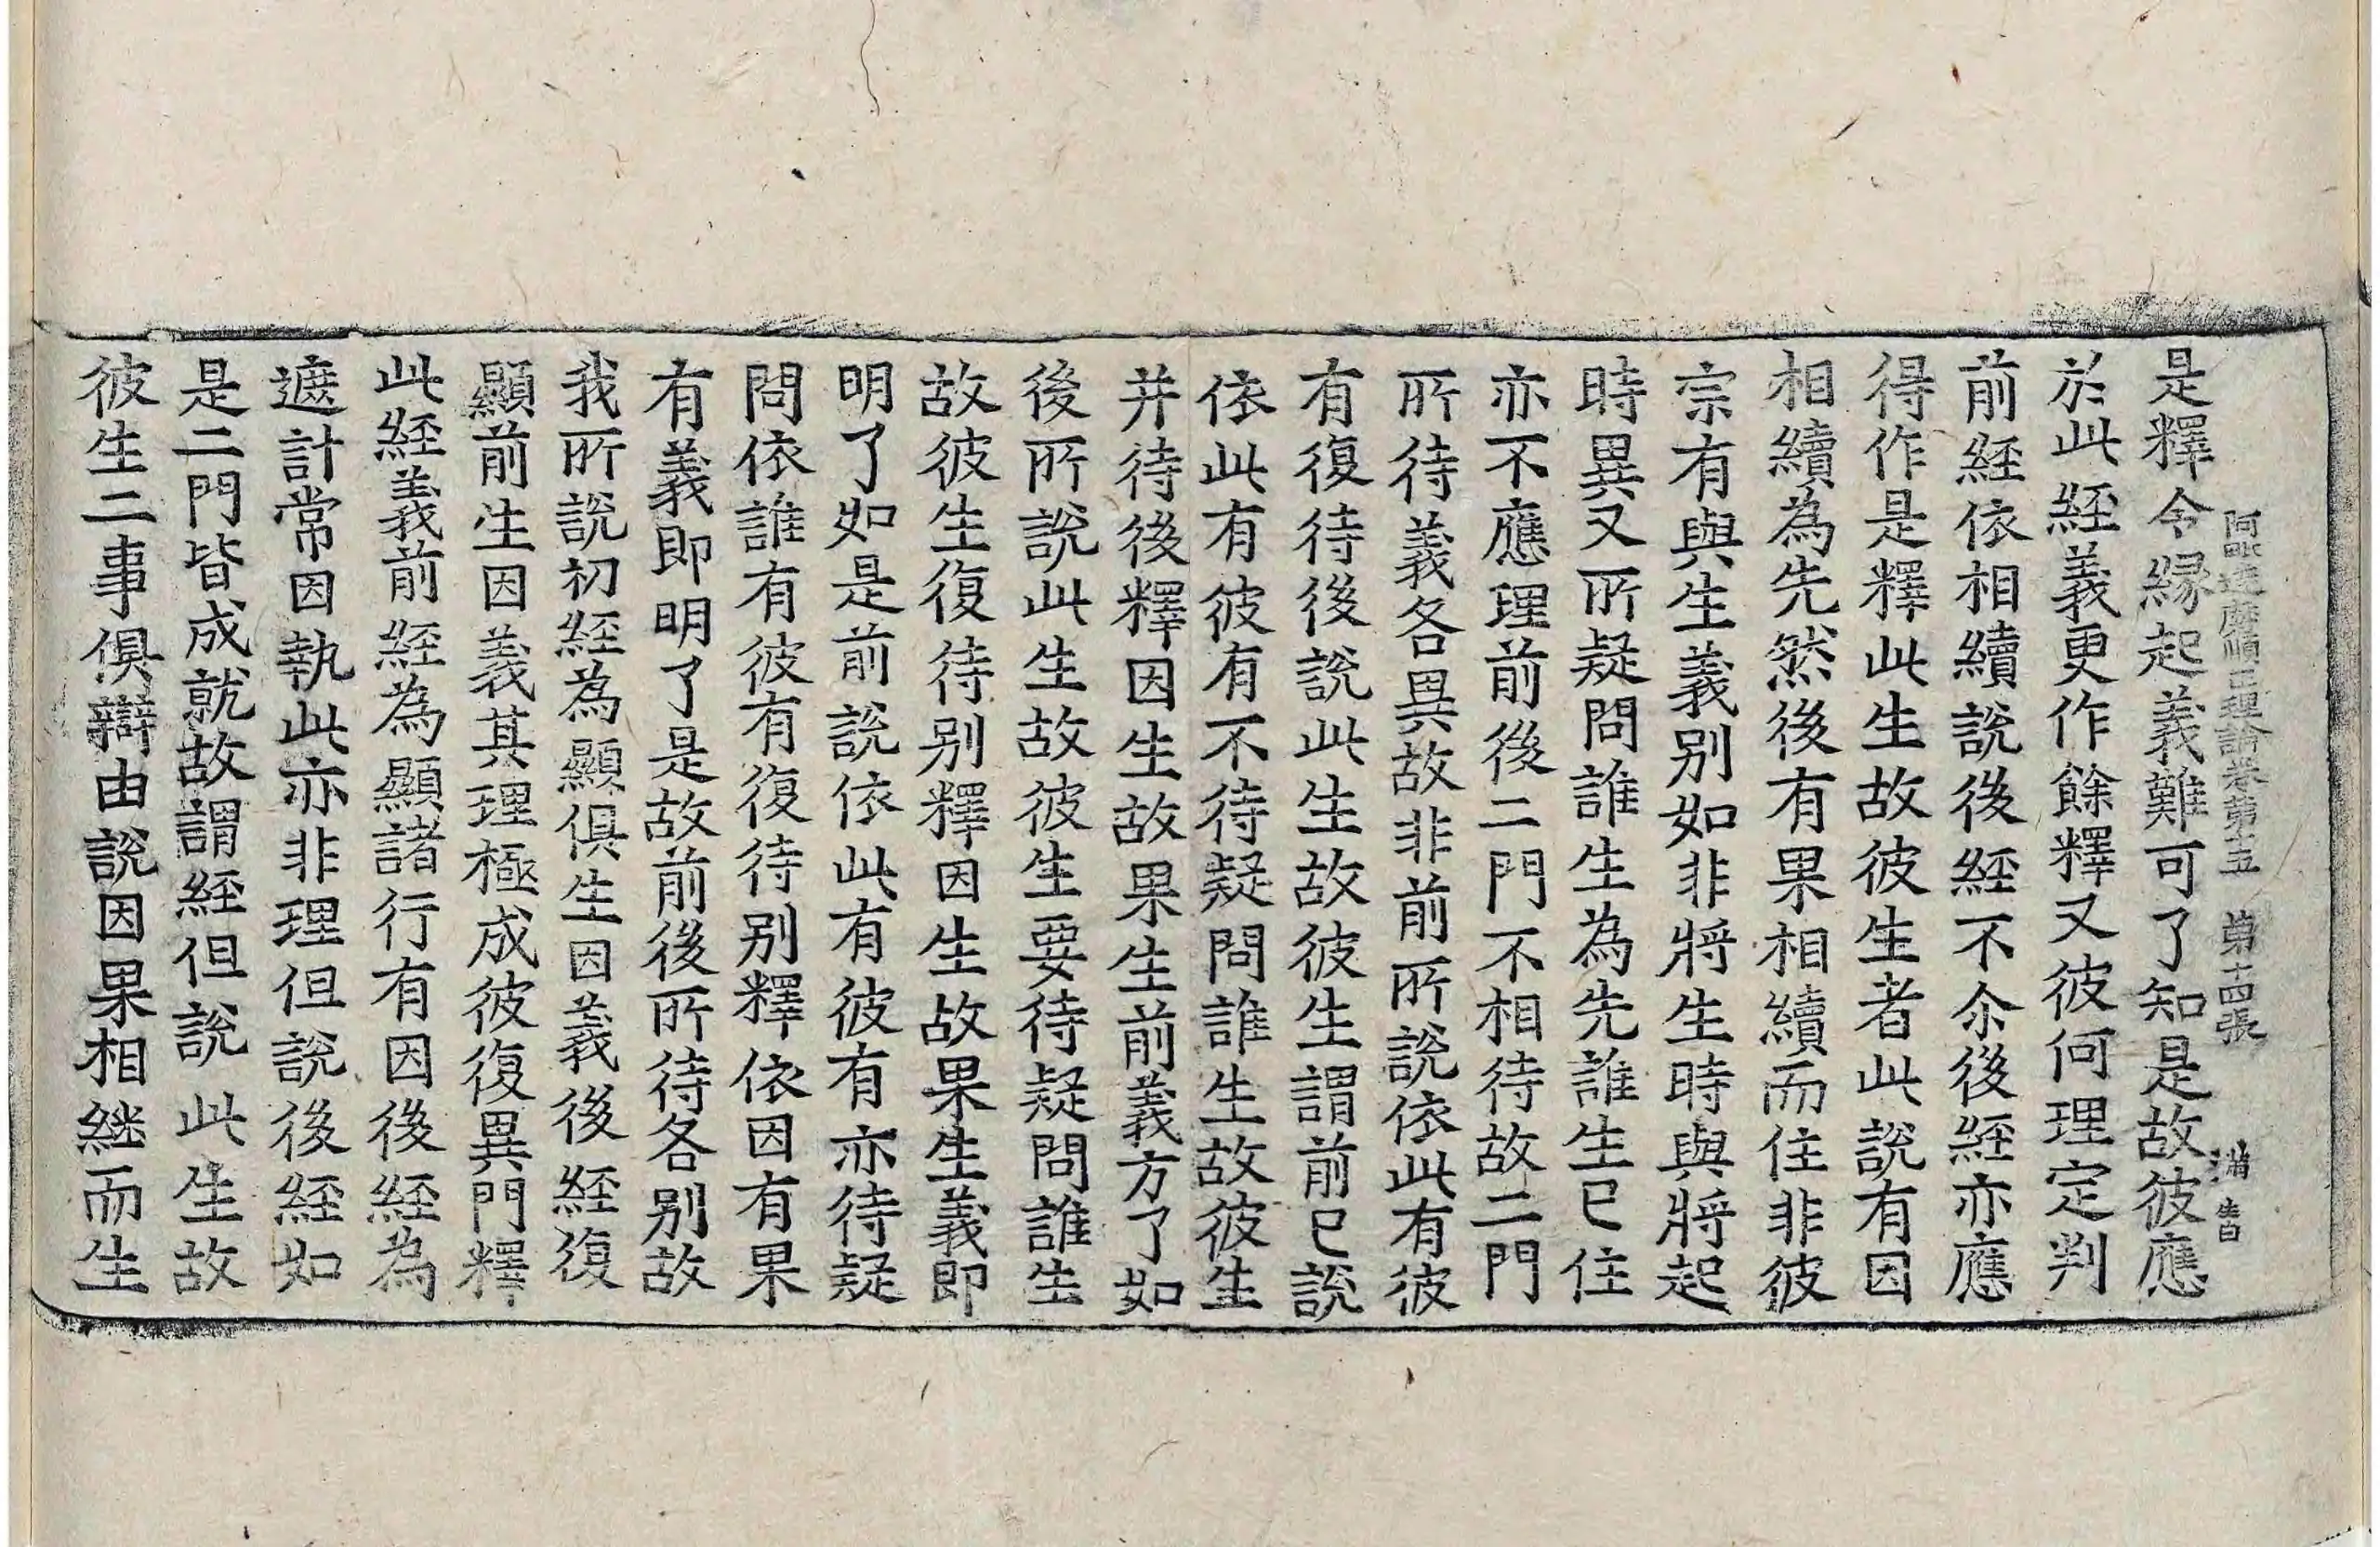 阿毗達磨順正理論卷第十五　第十四張　満　
是釋令縁起義難可了知是故彼應
於此經義更作餘釋又彼何理定判
前經依相續說後經不尒後經亦應
得作是釋此生故彼生者此說有因
相續為先然後有果相續而住非彼
宗有與生義别如非將生時與將起
時異又所疑問誰生為先誰生已住
亦不應理前後二門不相待故二門
所待義各異故非前所說依此有彼
有復待後說此生故彼生謂前已說
依此有彼有不待疑問誰生故彼生
并待後釋因生故果生前義方了如
後所說此生故彼生要待疑問誰生
故彼生復待别釋因生故果生義即
明了如是前說依此有彼有亦待疑
問依誰有彼有復待别釋依因有果
有義即明了是故前後所待各别故
我所說初經為顯俱生因義後經復
顯前生因義其理極成彼復異門釋
此經義前經為顯諸行有因後經為
遮計常因執此亦非理但說後經如
是二門皆成就故謂經但說此生故
彼生二事俱辯由說因果相継而生